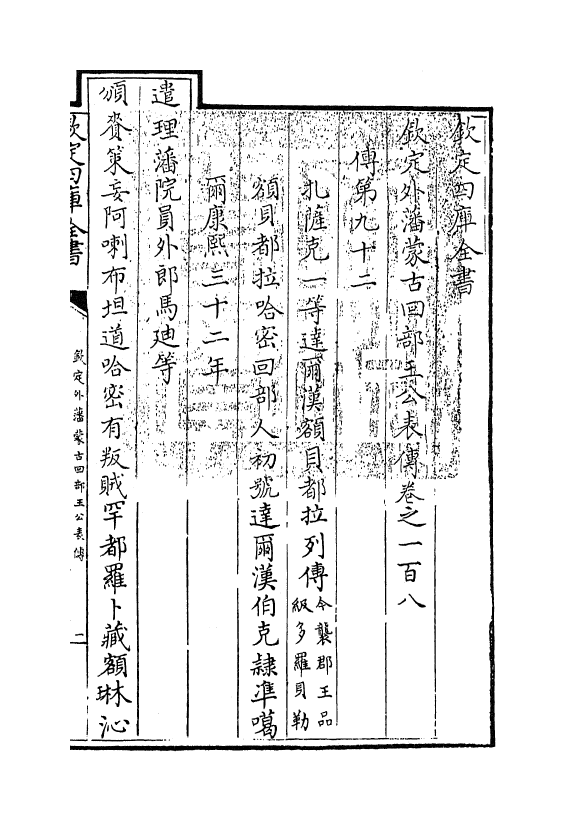 欽定四庫全書
欽定外藩蒙古回部王公表傳卷之一百八
傳第九十二
扎薩克一等達爾漢額貝都拉列傳今襲郡王品級多羅貝勒
額貝都拉哈密回部人初號達爾漢伯克隷準噶
爾康熙三十二年
遣理藩院員外郎馬廸等
頒賚策妄阿喇布坦道哈密有叛賊罕都羅卜藏額琳沁
欽定四庫全書
欽定外藩蒙古回部王公表傳
二